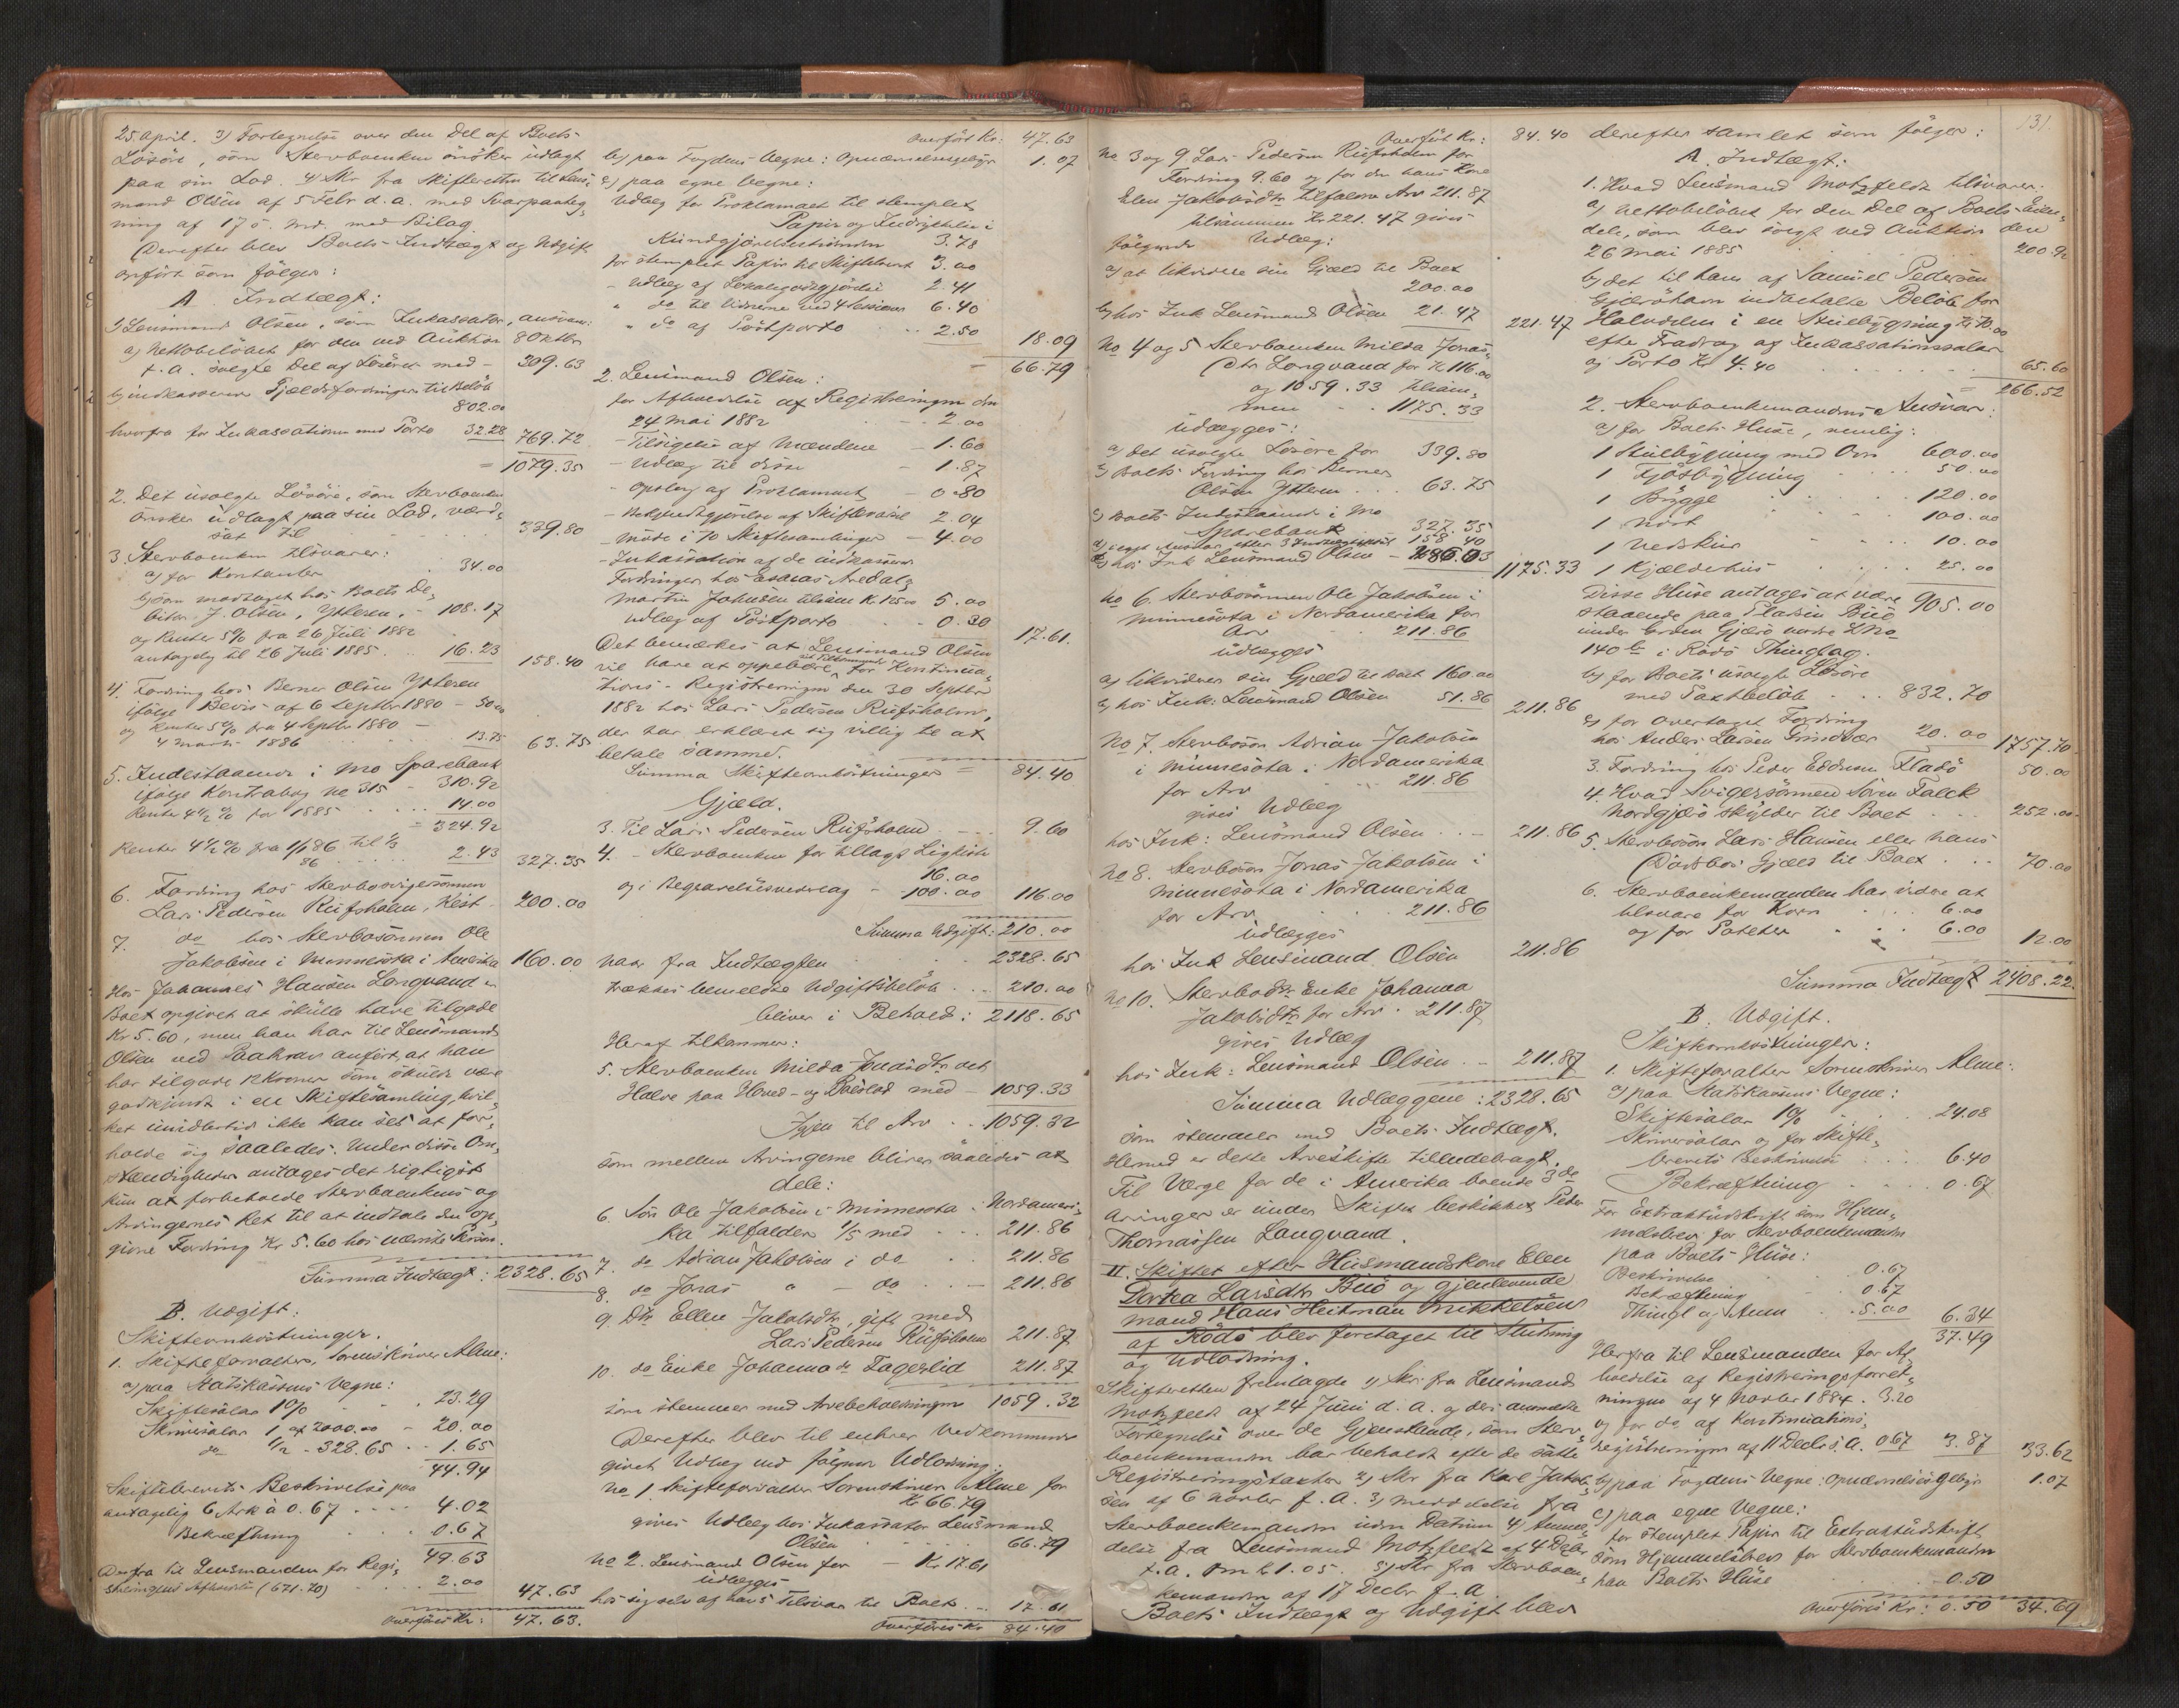 25 April. 3) Fortegnelse over den Del af Boets
Lösöre, som Stervboenken önsker udlagt
paa sin Lod. 4) Skr fra Skifteretten til Lens-
mand Olsen af 5 Febr d.a. med Svarpaateg-
ning af 17 s. Md. med Bilag.
Derefter blev Boets Indtægt og Udgift
opfört som fölger:
A. Indtægt:
1) Lensmand Olsen, som Inkassator, ansvar:
a) Nettobelöbet for den ved Auktion 8 Oktbr
f.A. solgte Del af Lösöret med - 309.63
b) indkasserede Gjældsfordringer til Belöb
802.00
hvorfra for Inkassationen med Porto 32.28 769.72
= 1079.35
2. Det usolgte Lösöre, som Stervboenken
önsker udlagt paa sin Lod, værd-
sat til 339.80
3. Stervboenken tilsvarer:
a) for Kontanter 34.00
b) som modtaget hos Boets De-
bitor J. Olsen, Ytteren, - 108.17
og Renter 5% fra 26 Juli 1882
antagelig til 26 Juli 1885 .. 16.23 158.40
4. Fordring hos Berner Olsen Ytteren
ifölge Bevis af 6 Septbr 1880 - 50.00
og Renter 5% fra 4 Septbr 1880 -
4 Marts 1886 13.75 63.75
5. Indestaaende i Mo Sparebank
ifölge Kontrabog No 315 - 310.92
Renter 4 1/2 % for 1885 14.00
= 324.92
Renter 4 1/2 % fra 1/1 86 til 1/3
86 2.43 327.35
6. Fordring hos Stervbosvigersönnen
Lars Pedersen Rufsholm, Rest. 200.00
7. do hos Stervbosönnen Ole
Jakobsen i Minnesota i Amerika 160.00
Hos Johannes Hansen Langvand er
Boet opgivet at skulle have tilgode
Kr 5.60, men han har til Lensmand
Olsen ved Paakrav anfört, at han
har tilgode 12 Kroner som skulde være
godkjendt i en Skiftesamling, hvil-
ket imidlertid ikke kan sees at for-
holde sig saaledes. Under disse Om-
stændigheder antages det rigtigst
kun at forbeholde Stervboenkens og
Arvingernes Ret til at indtale den op-
givne Fordring Kr 5.60 hos nævnte Person.
Summa Indtægt: 2328.65
B. Udgift:
Skifteomkostninger.
1. Skifteforvalteren, Sorenskriver Alme:
a) paa Statskassens Vegne:
Skiftesalær 1% 23.29
Skriversalær 1 af 2000.00 - 20.00
do 1/2 - 328.65 .. 1.65
44.94
Skiftebrevets Beskrivelse paa
antagelig 6 Ark à 0.67 .... 4.02
Bekræftning 0.67
49.63
Derfra til Lensmanden for Regi-
streringens Afholdelse (671.70) 2.00 47.63
Overföres Kr: 47.63.
Overfört Kr: 47.63
b) paa Fogdens Vegne: Opnævnelsesgebyr 1.07
c) paa egne Vegne:
Udlæg for Proklamaet til stemplet
Papir og Indrykkelse i
Kundgjörelsestidenden 3.78
for stemplet Papir til Skiftebrevet 3.00
- Udlæg af Lokalegodtgjörelse 2.41
" do til Vidnerne ved 4 Sessioner 6.40
" do af Postporto 2.50 18.09
= 66.79
2. Lensmand Olsen:
for Afholdelse af Registreringen den
24 Mai 1882 - 2.00
- Tilsigelse af Mændene - 1.60
- Udlæg til disse - 1.87
- Opslag af Proklamaet - 0.80
- Bekjendtgjörelse af Skiftevarsel 2.04
- Möde i 10 Skiftesamlinger - 4.00
- Inkassation af de indkasserede
Fordringer hos Esaias Aredal &
Martin Johnsen tilsam. Kr 125.00 5.00
Udlæg af Postporto 0.30 17.61.
Det bemærkes at Lensmand Olsen
vil have at oppebære, sit Tilkommende for Kontinua-
tions-Registreringen den 30 Septbr
1882 hos Lars Pedersen Rufsholm,
der har erklæret sig villig til at
betale samme.
Summa Skifteomkostninger = 84.40
Gjæld.
3. Til Lars Pedersen Rufsholm 9.60
4. - Stervboenken for tillagt Ligkiste
16.00
og i Begravelsesvederlag - 100.00 116.00
Summa Udgift: 210.00
Naar fra Indtægten 2328.65
trækkes bemeldte Udgiftsbelöb .. 210.00
bliver i Behold: 2118.65
Heraf tilkommer:
5. Stervboenken Milda Jonasdtr det
Halve paa Hoved- og Boeslod med - 1059.33
Igjen til Arv .. 1059.32
som mellem Arvingerne bliver saaledes at
dele:
6. Sön Ole Jakobsen i Minnesota i Nordameri-
ka tilfalder 1/5 med 211.86
7. do Adrian Jakobsen i do 211.86
8. do Jonas " - do 211.86
9. Dtr Ellen Jakobsdtr, gift med
Lars Pedersen Rufsholm 211.87
10. do Enke Johanna do Fagerlid 211.87
som stemmer med Arvebeholdningen 1059.32
Derefter blev til enhver Vedkommende
givet Udlæg ved fölgende Udlodning:
No 1. Skifteforvalter Sorenskriver Alme for
Kr 66.79
gives Udlæg hos Inkassator Lensmand
Olsen 66.79
No 2. Lensmand Olsen for - Kr. 17.61
udlægges
hos sig selv af hans Tilsvar til Boet .. 17.61
Overföres Kr 84.40
Overfört Kr: 84.40
No 3 og 9 Lars Pedersen Rufsholm for
Fordring 9.60 og for den hans Kone
Elen Jakobsdtr tilfaldne Arv 211.87
tilsammen Kr 221.47 gives
fölgende Udlæg:
a) at likvidere sin Gjæld til Boet
200.00
b) hos Ink Lensmand Olsen 21.47 221.47
No 4 og 5 Stervboenken Milda Jonas-
dtr Langvand for Kr 116.00
og 1059.33 tilsam-
men 1175.33
udlægges:
a) det usolgte Lösöre for 339.80
b) Boets Fordring hos Berner
Olsen Ytteren ... 63.75
c) Boets Indestaaende i Mo
Sparebank - 327.35
d) eget Ansvar efter 3 Indtægtspost 158.40
e) hos Ink Lensmand Olsen - 286.03 1175.33
No 6. Stervbosönnen Ole Jakobsen i
Minnesota i Nordamerika for
Arv 211.86
udlægges
a) likviderer sin Gjæld til Boet 160.00
b) hos Ink: Lensmand Olsen 51.86 211.86
No 7. Stervbosön Adrian Jakobsen
i Minnesota i Nordamerika
for Arv 211.86
gives Udlæg
hos Ink: Lensmand Olsen .. - 211.86
No 8. Stervbosön Jonas Jakobsen i
Minnesota i Nordamerika
for Arv 211.86
udlægges
hos Ink Lensmand Olsen 211.86
No 10. Stervbodtr Enke Johanna
Jakobsdtr for Arv . 211.87
gives Udlæg
hos Ink: Lensmand Olsen .. - 211.87
Summa Udlæggene: 2328.65
som stemmer med Boets Indtægt.
Hermed er dette Arveskifte tilendebragt.
Til Værge for de i Amerika boende 3de
Arvinger er under Skiftet beskikket Peder
Thomassen Langvand.
II. Skiftet efter Husmandskone Elen
Dortea Larsdtr Buö og gjenlevende
Mand Hans Heitman Mikkelsens
af Rödö blev foretaget til Slutning
og Udlodning.
Skifteretten fremlagde 1) Skr. fra Lensmand
Motzfeldt af 24 Juni d.a. og den anmeldte
Fortegnelse over de Gjenstande, som Sterv-
boenkemanden har beholdt efter de satte
Registreringstaxter 2) Skr fra Karl Jakob-
sen af 6 Novbr f.A. 3) Meddelelse fra
Stervboenkemanden uden Datum 4) Anmel-
delse fra Lensmand Motzfeldt af 4 Decbr
f.a. om Kr 1.05. 5) Skr fra Stervboen-
kemanden af 17 Decbr f.a.
Boets Indtægt og Udgift blev
131.
derefter samlet som fölger:
A. Indtægt:
1. Hvad Lensmand Motzfeldt tilsvarer:
a) Nettobelöbet for den Del af Boets Eien-
dele, som blev solgt ved Auktion den
26 Mai 1885 200.92
b) det til ham af Samuel Pedersen
Gjæröhavn indbetalte Belöb for
Halvdelen i en Stuebygning Kr 70.00
efter Fradrag af Inkassationssalær
og Porto Kr 4.40 65.60
= 266.52
2. Stervboenkemandens Ansvar:
a) for Boets Huse, nemlig:
1 Stuebygning med Ovn 600.00
1 Fjösbygning 50.00
1 Brygge 120.00
1 Nöst 100.00
1 Vedskur 10.00
1 Kjælderhus 25.00
905.00
Disse Huse antages at være
staaende paa Pladsen Buö
under Gaarden Gjærö nordre L No
140 b i Rödö Thinglag.
b) for Boets usolgte Lösöre
med Taxtbelöb .. 832.70
c) for overtaget Fordring
hos Anders Larsen Grindvær 20.00 1757.70
3. Fordring hos Peder Eddesen Fladö 50.00
4. Hvad Svigersönnen Sören Falck
Nordgjærö skylder til Boet 252.00
5. Stervbosön Lars Hansen eller hans
Dödsbos Gjæld til Boet 70.00
6. Stervboenkemanden har videre at
tilsvare for Korn 6.00
og for Poteter 6.00 12.00
Summa Indtægt 2408.22
B. Udgift.
Skifteomkostninger:
1. Skifteforvalter Sorenskriver Alme:
a) paa Statskassens Vegne:
Skiftesalær 1% 24.08
Skriversalær og for Skifte-
brevets Beskrivelse 6.40
Bekræftning 0.67
For Extraktudskrift som Hjem-
melsbrev for Stervboenkemanden
paa Boets Huse:
Beskrivelse 0.67
Bekræftning 0.67
Thingl og Anm 5.00 6.34
37.49
Herfra til Lensmanden for Af-
holdelse af Registreringsforret-
ningen af 4 Novbr 1884. 3.20
og for do. af Kontinuations-
registreringen af 11 Decbr s.A. 0.67 3.87 33.62
b) paa Fogdens Vegne: Opnævnelsesgebyr 1.07
c) paa egne Vegne:
for stemplet Papir til Extraktudskrift
som Hjemmelsbrev for Stervboenkemanden
paa Boets Huse 0.50
Overföres Kr: 0.50 34.69